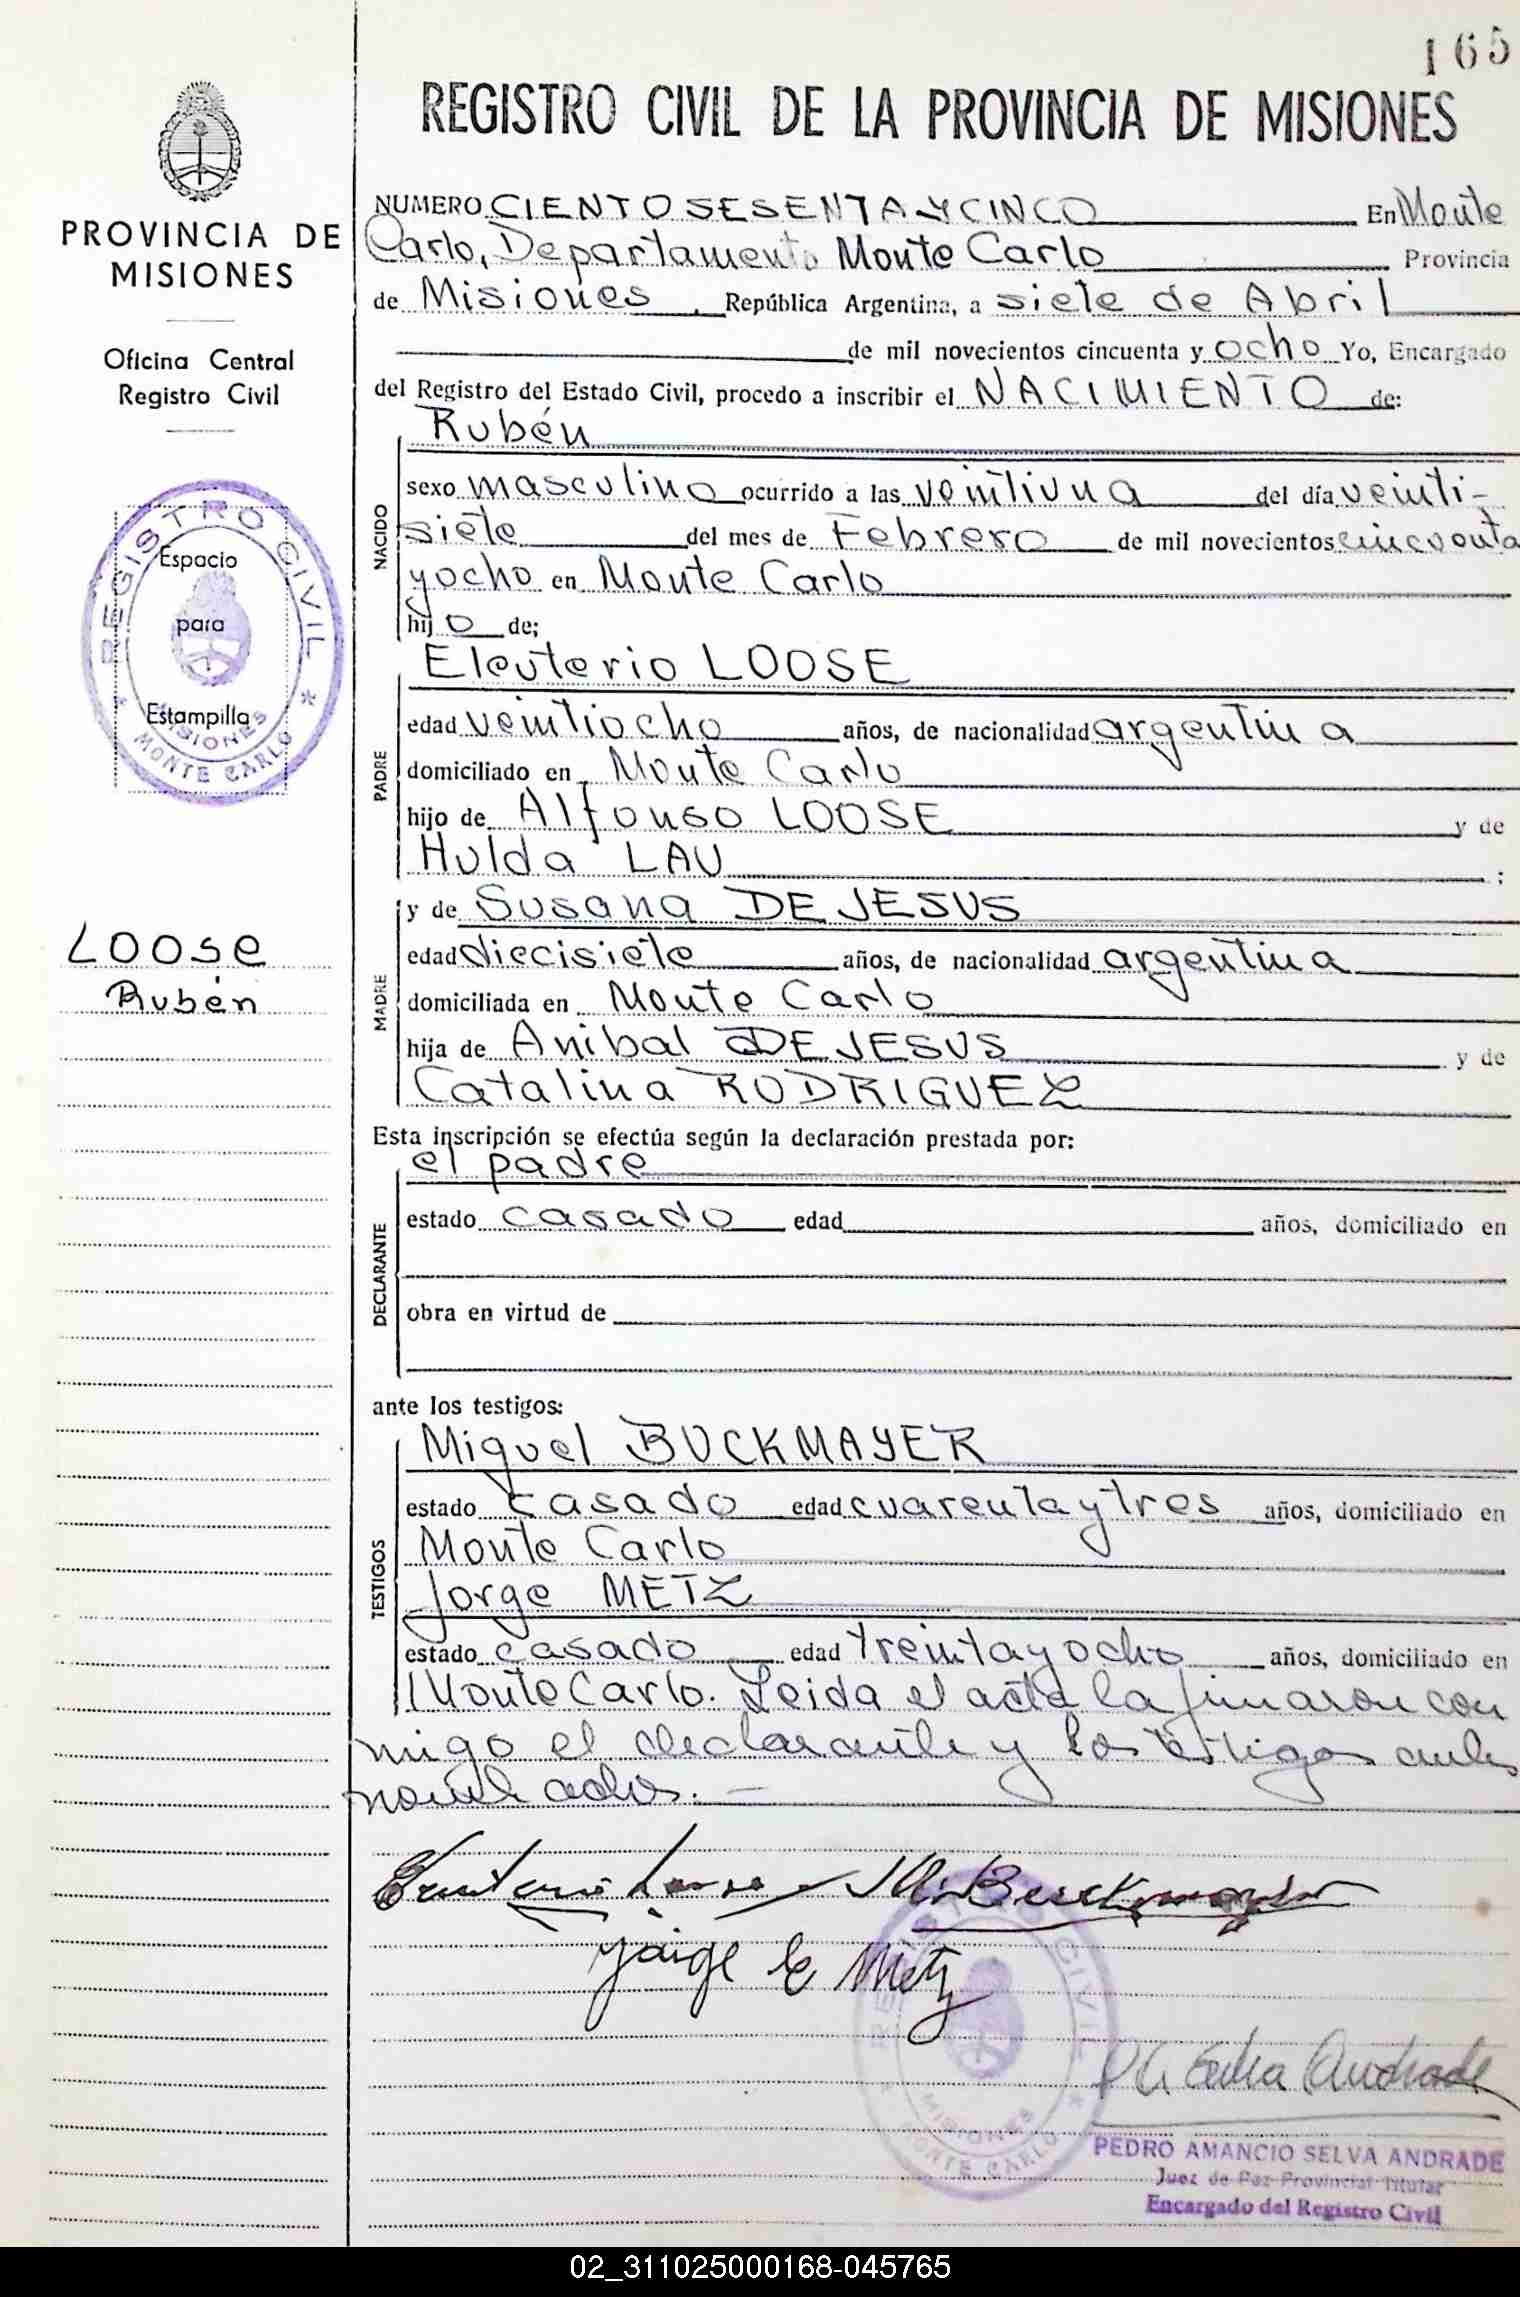 165
REGISTRO CIVIL DE LA PROVINCIA DE MISIONES
PROVINCIA DE
MISIONES
Oficina Central
Registro Civil
REGISTRO CIVIL
Espacio
para
Estampilla
MISIONES
MONTE CARLO
LOOSE
Rubén
NUMERO CIENTO SESENTA Y CINCO En Monte
Carlo, Departamento Monte Carlo Provincia
de Misiones, República Argentina, a siete de Abril
de mil novecientos cincuenta y ocho Yo, Encargado
del Registro del Estado Civil, procedo a inscribir el NACIMIENTO de:
NACIDO
Rubén
sexo masculino ocurrido a las veintiuna del día veinti-
siete del mes de Febrero de mil novecientos cincuenta
y ocho en Monte Carlo
hijo de;
PADRE
Eleuterio LOOSE
edad veintiocho años, de nacionalidad argentina
domiciliado en Monte Carlo
hijo de Alfonso LOOSE y de
Hulda LAU ;
MADRE
y de Susana DE JESUS
edad diecisiete años, de nacionalidad argentina
domiciliada en Monte Carlo
hija de Anibal DE JESUS y de
Catalina RODRIGUEZ
Esta inscripción se efectúa según la declaración prestada por:
DECLARANTE
el padre
estado casado edad años, domiciliado en
obra en virtud de
ante los testigos:
TESTIGOS
Miguel BUCKMAYER
estado casado edad cuarenta y tres años, domiciliado en
Monte Carlo
Jorge METZ
estado casado edad treinta y ocho años, domiciliado en
Monte Carlo. Leida el acta la firmaron con
migo el declarante y los testigos antes
nombrados.-
Jorge E Metz
REGISTRO CIVIL
MISIONES
MONTE CARLO
PEDRO AMANCIO SELVA ANDRADE
Juez de Paz Provincial Titular
Encargado del Registro Civil
02_311025000168-045765